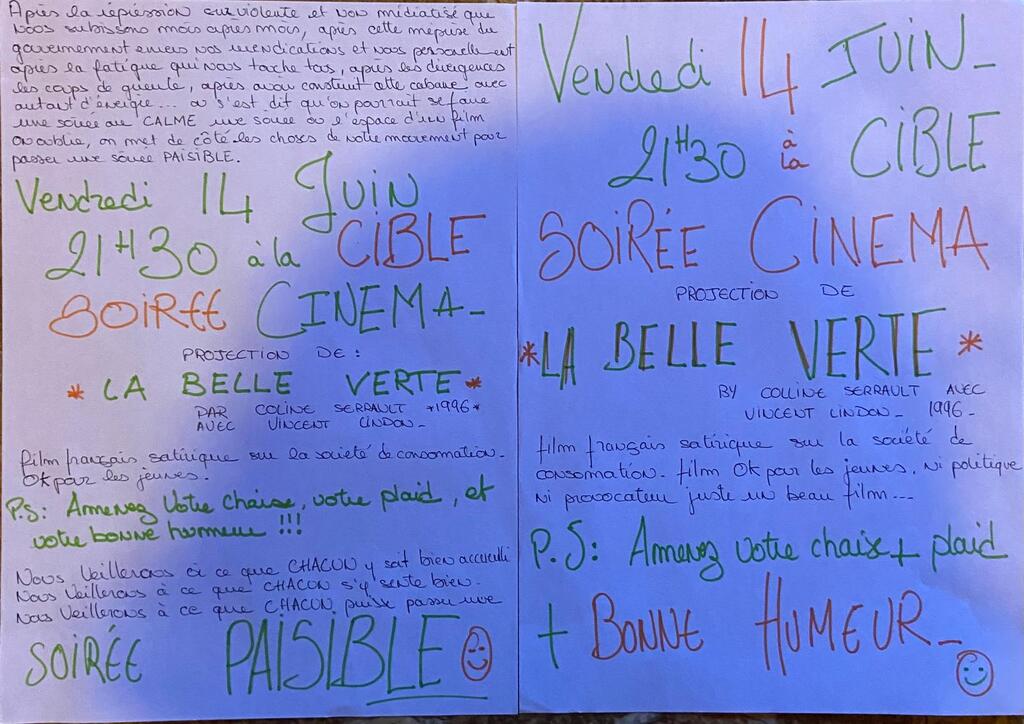 Après la répression surviolente et non médiatisé que
nous subissons mois après mois, après cette méprise du
gouvernement envers nos revendications et nous personellement
après la fatigue qui nous tache tas, après les divergences
les coups de gueule, après avoir construit cette cabane avec
autant d'énergie... on s'est dit qu'on pourrait se faire
une soirée au CALME une soirée où l'espace d'un film
on oublie, on met de côté les choses de notre mouvement pour
passer une soirée PAISIBLE.
Vendredi 14 Juin
21H30 à la CIBLE
SOIREE CINEMA-
PROJECTION DE :
* LA BELLE VERTE *
PAR COLINE SERRAULT *1996*
AVEC VINCENT LINDON-
film français satirique sur la société de consomation-
Ok pour les jeunes.
P.S: Amenez Votre chaise, votre plaid, et
votre bonne humeur !!!
Nous Veillerons à ce que CHACUN y soit bien accueilli
Nous Veillerons à ce que CHACUN s'y sente bien-
Nous Veillerons à ce que CHACUN puisse passer une
SOIRÉE PAISIBLE
Vendredi 14 JUIN-
21H30 à la CIBLE
SOIRÉE CINEMA
PROJECTION DE
*LA BELLE VERTE *
BY COLLINE SERRAULT AVEC
VINCENT LINDON- 1996-
film français satirique sur la société de
consomation- film Ok pour les jeunes, ni politique
ni provocateur juste un beau film...
P.S: Amenez votre chaise + plaid
+ BONNE HUMEUR-